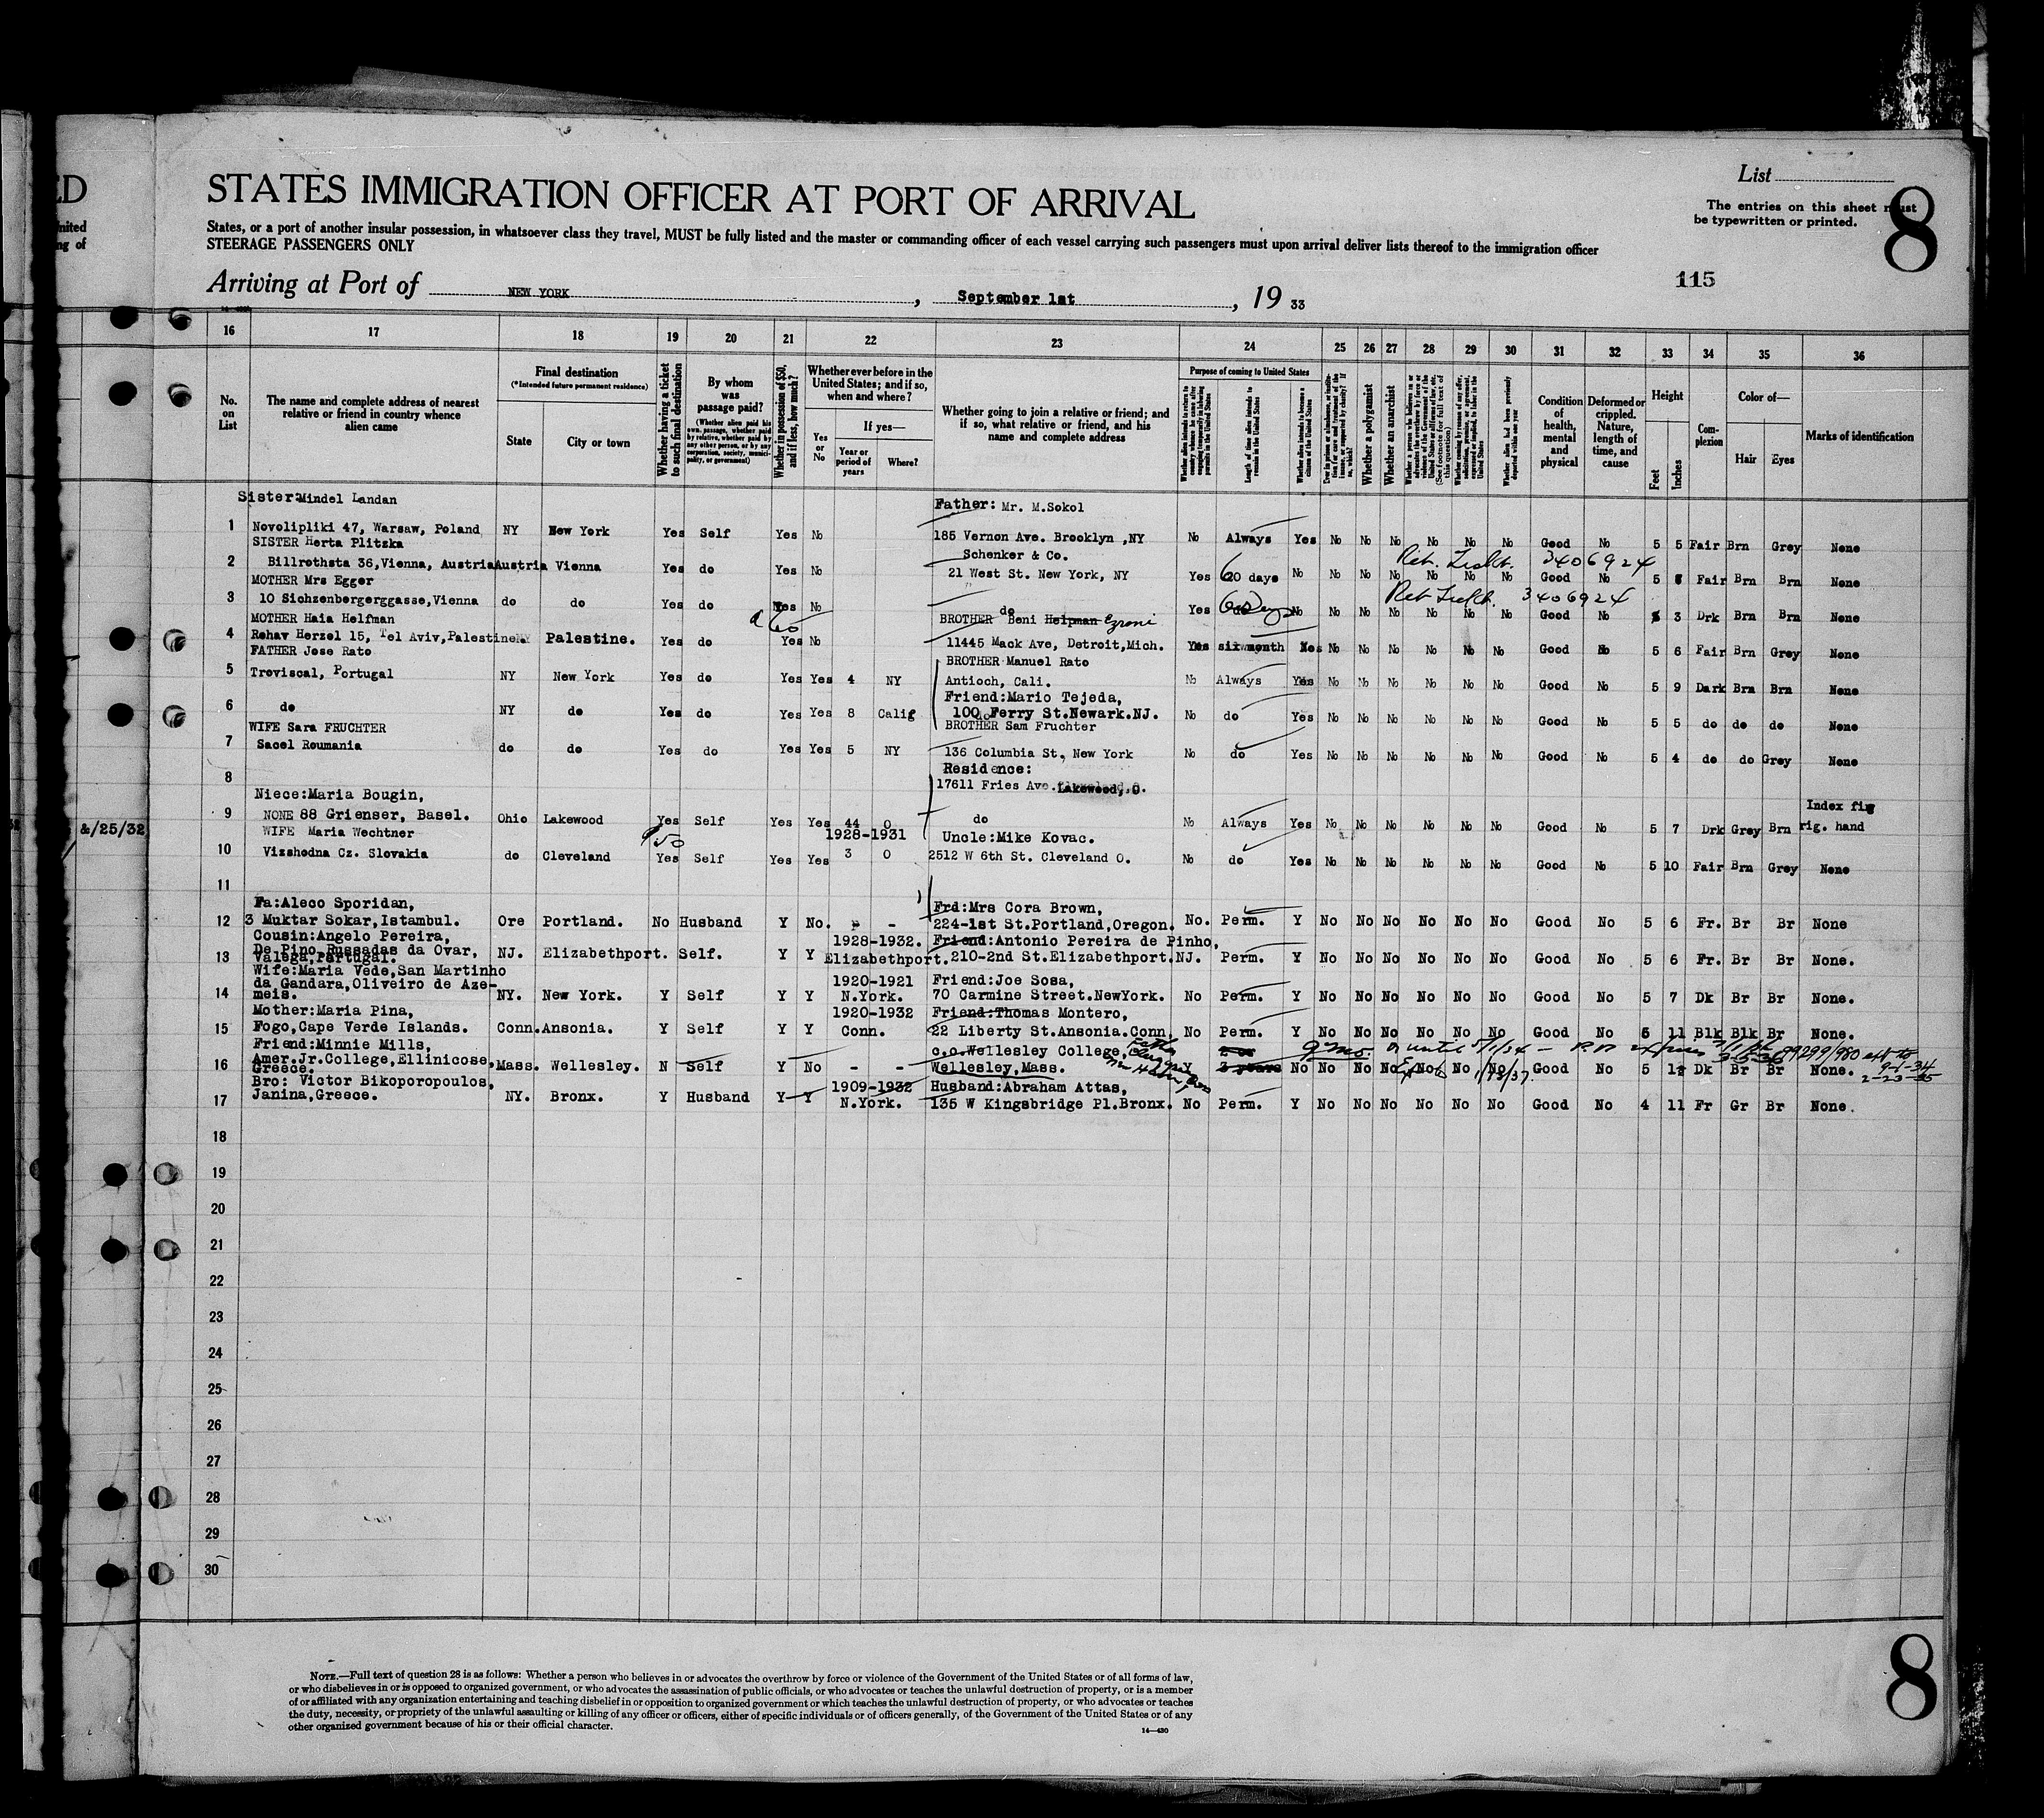 ED
nited
ng of
&/25/32
List
The entries on this sheet must
be typewritten or printed.
8
STATES IMMIGRATION OFFICER AT PORT OF ARRIVAL
States, or a port of another insular possession, in whatsoever class they travel, MUST be fully listed and the master or commanding officer of each vessel carrying such passengers must upon arrival deliver lists thereof to the immigration officer
STEERAGE PASSENGERS ONLY
115
Arriving at Port of NEW YORK, September 1st, 19 33
16 17 18 19 20 21 22 23 24 25 26 27 28 29 30 31 32 33 34 35 36
No. on List
The name and complete address of nearest relative or friend in country whence alien came
Final destination
(*Intended future permanent residence)
State
City or town
Whether having a ticket to such final destination
By whom was passage paid?
(Whether alien paid his own passage, whether paid by relative, whether paid by any other person, or by any corporation, society, municipality, or government)
Whether in possession of $50, and if less, how much?
Whether ever before in the United States; and if so, when and where?
Yes or No
If yes—
Year or period of years
Where?
Whether going to join a relative or friend; and if so, what relative or friend, and his name and complete address
Purpose of coming to United States
Length of time alien intends to remain in the United States
Whether alien intends to become a citizen of the United States
Whether a polygamist
Whether an anarchist
Whether alien had been previously deported within one year
Condition of health, mental and physical
Deformed or crippled. Nature, length of time, and cause
Height
Feet
Inches
Complexion
Color of—
Hair
Eyes
Marks of identification
Sister: Mindel Landan Father: Mr. M.Sokol
1 Novolipliki 47, Warsaw, Poland NY New York Yes Self Yes No 185 Vernon Ave. Brooklyn ,NY No Always Yes No No No No No No Good No 5 5 Fair Brn Grey None
SISTER Herta Plitzka Schenker & Co. Ret. Ticket. 3406924
2 Billrothsta 36,Vienna, Austria Austria Vienna Yes do Yes No 21 West St. New York, NY Yes 60 days No No No No No No No Good No 5 Fair Brn Brn None
MOTHER Mrs Egger Ret Ticket. 3406924
3 10 Sichzenbergerggasse,Vienna do do Yes do Yes No do Yes 60 Days No No No No No No No Good No 3 Drk Brn Brn None
MOTHER Haia Helfman BROTHER Beni Helpman Ezroni
4 Rehav Herzel 15, Tel Aviv,Palestine Palestine. Yes do Yes No 11445 Mack Ave, Detroit,Mich. Yes six month No No No No No No Good No 5 6 Fair Brn Grey None
FATHER Jose Rato BROTHER Manuel Rato
5 Troviscal, Portugal NY New York Yes do Yes Yes 4 NY Antioch, Cali. No Always Yes No No No No No No Good No 5 9 Dark Brn Brn None
Friend:Mario Tejeda,
6 do NY do Yes do Yes Yes 8 Calif 100 Ferry St.Newark.NJ. No do Yes No No No No No No Good No 5 5 do do do None
WIFE Sara FRUCHTER BROTHER Sam Fruchter
7 Sacel Roumania do do Yes do Yes Yes 5 NY 136 Columbia St, New York No do Yes No No No No No No Good No 5 4 do do Grey None
Residence:
8 17611 Fries Ave. Lakewood, O.
Niece:Maria Bougin, Index fig
9 NONE 88 Grienser, Basel. Ohio Lakewood Yes Self Yes Yes 44 O do No Always Yes No No No No No No Good No 5 7 Drk Grey Brn rig. hand
WIFE Maria Wechtner $50 1928-1931 Uncle:Mike Kovac.
10 Vizshodna Cz. Slovakia do Cleveland Yes Self Yes Yes 3 O 2512 W 6th St. Cleveland O. No do Yes No No No No No No Good No 5 10 Fair Brn Grey None
11
Fa:Aleco Sporidan, Frd:Mrs Cora Brown,
12 3 Muktar Sokar,Istambul. Ore Portland. No Husband Y No. - - 224-1st St.Portland,Oregon. No. Perm. Y No No No No No No Good No 5 6 Fr. Br Br None
Cousin:Angelo Pereira, 1928-1932. Friend:Antonio Pereira de Pinho,
13 De Pino Russadas da Ovar, Valega,Portugal. NJ. Elizabethport. Self. Y Y Elizabethport. 210-2nd St.Elizabethport.NJ. Perm. Y No No No No No No Good No 5 6 Fr. Br Br None.
Wife:Maria Vede,San Martinho 1920-1921 Friend:Joe Sosa,
da Gandara,Oliveiro de Aze-
14 meis. NY. New York. Y Self Y Y N.York. 70 Carmine Street.NewYork. No Perm. Y No No No No No No Good No 5 7 Dk Br Br None.
Mother:Maria Pina, 1920-1932 Friend:Thomas Montero,
15 Fogo,Cape Verde Islands. Conn. Ansonia. Y Self Y Y Conn. 22 Liberty St.Ansonia.Conn. No Perm. Y No No No No No No Good No 5 11 Blk Blk Br None.
Friend:Minnie Mills, c.o.Wellesley College, 9 mo. or until
16 Amer.Jr.College,Ellinicose, Greece. Mass. Wellesley. N Self Y No - - Wellesley,Mass. Y 2 years No No No No No No No Good No 5 Dk Br Br None. 9-1-34
Bro: Victor Bikoporopoulos, 1909-1932 Husband:Abraham Attas,
17 Janina,Greece. NY. Bronx. Y Husband Y Y N.York. 135 W Kingsbridge Pl.Bronx. No Perm. Y No No No No No No Good No 4 11 Fr Gr Br None.
18
19
20
21
22
23
24
25
26
27
28
29
30
NOTE.—Full text of question 28 is as follows: Whether a person who believes in or advocates the overthrow by force or violence of the Government of the United States or of all forms of law,
or who disbelieves in or is opposed to organized government, or who advocates the assassination of public officials, or who advocates or teaches the unlawful destruction of property, or is a member
of or affiliated with any organization entertaining and teaching disbelief in or opposition to organized government or which teaches the unlawful destruction of property, or who advocates or teaches
the duty, necessity, or propriety of the unlawful assaulting or killing of any officer or officers, either of specific individuals or of officers generally, of the Government of the United States or of any
other organized government because of his or their official character.
14—430
8